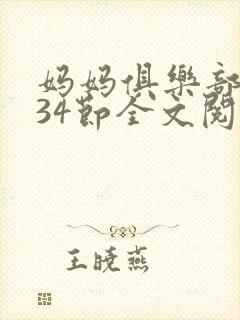 妈妈俱樂部
34節全文閱
王曉燕